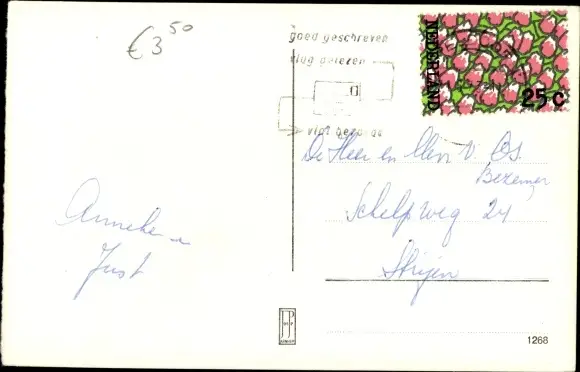 €3 50
goed geschreven
vlug gelezen
vlot bezorgd
NEDERLAND
25 c
De Heer en Mevr v. Os.
Bezemer
Schelpweg 24
Strijen
Anneke en
Just
1268